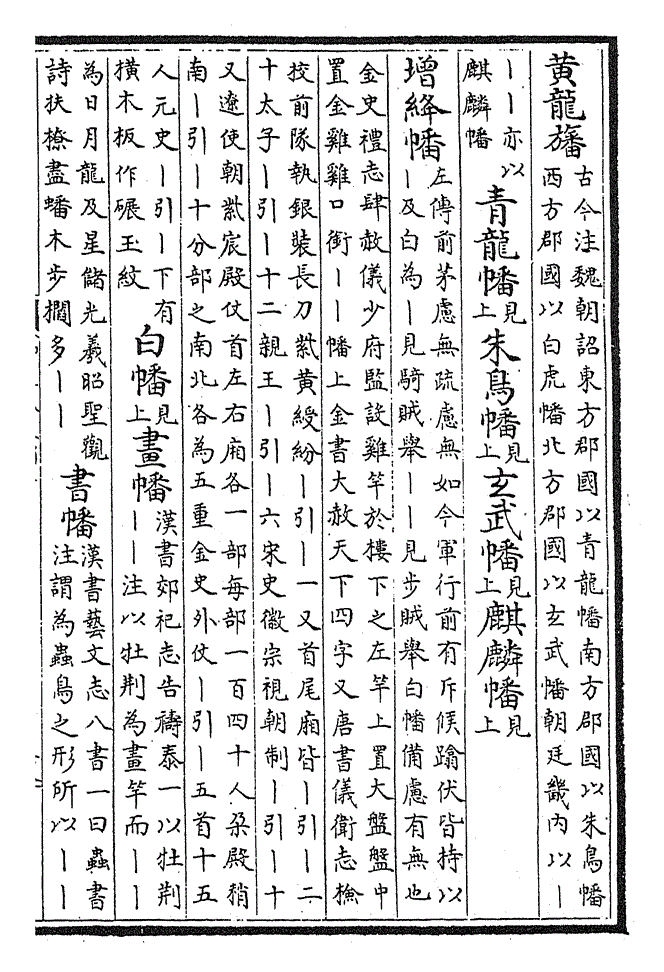 黄龍旛 古今注魏朝詔東方郡國以青龍幡南方郡國以朱鳥幡
西方郡國以白虎幡北方郡國以玄武幡朝廷畿内以丨
丨丨亦以
麒麟幡
青龍幡 見上 朱鳥幡 見上 玄武幡 見上 麒麟幡 見上
增絳幡 左傳前茅慮無疏慮無如今軍行前有斥候蹹伏皆持以
丨及白為丨見騎賊舉丨丨見步賊舉白幡備慮有無也
金史禮志肆赦儀少府監設雞竿於樓下之左竿上置大盤盤中
置金雞雞口銜丨丨幡上金書大赦天下四字又唐書儀衛志檢
挍前隊執銀裝長刀紫黄綬紛丨引丨一又首尾廂皆丨引丨二
十太子丨引丨十二親王丨引丨六宋史徽宗視朝制丨引丨十
又遼使朝紫宸殿仗首左右廂各一部每部一百四十人朶殿稍
南丨引丨十分部之南北各為五重金史外仗丨引丨五首十五
人元史丨引丨下有
橫木板作碾玉紋
白幡 見上 畫幡 漢書郊祀志告禱泰一以牡荆
丨丨注以牡荆為畫竿而丨丨
為日月龍及星儲光羲昭聖觀
詩扶橑盡蟠木步櫩多丨丨
書幡 漢書藝文志八書一曰蟲書
注謂為蟲鳥之形所以丨丨